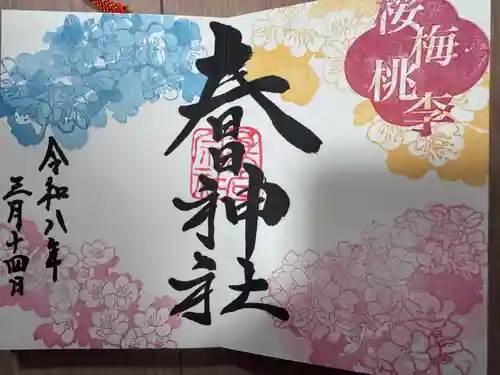 桜梅
桃李
春日神社
令和八年
三月十四日